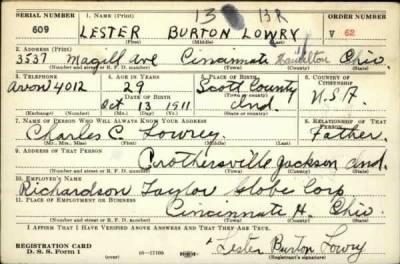 SERIAL NUMBER 1. NAME (Print) 13 BR ORDER NUMBER
609 LESTER BURTON LOWRY V 62
(First) (Middle) (Last)
2. ADDRESS (Print)
3537 Magill Ave Cincinnati Hamilton Ohio.
(Number and street or R. F. D. number) (Town) (County) (State)
3. TELEPHONE 4. AGE IN YEARS 5. PLACE OF BIRTH 6. COUNTRY OF CITIZENSHIP
Avon 4012 29 Scott County U.S.A.
DATE OF BIRTH
Oct 13 1911 Ind.
(Exchange) (Number) (Mo.) (Day) (Yr.) (State or country)
7. NAME OF PERSON WHO WILL ALWAYS KNOW YOUR ADDRESS 8. RELATIONSHIP OF THAT PERSON
Charles C. Lowrey. Father.
(Mr., Mrs., Miss) (First) (Middle) (Last)
9. ADDRESS OF THAT PERSON
Crothersville Jackson Ind.
(Number and street or R. F. D. number) (Town) (County) (State)
10. EMPLOYER'S NAME
Richardson Taylor Globe Corp
11. PLACE OF EMPLOYMENT OR BUSINESS
Cincinnati H. Ohio.
(Number and street or R. F. D. number) (Town) (County) (State)
I AFFIRM THAT I HAVE VERIFIED ABOVE ANSWERS AND THAT THEY ARE TRUE.
REGISTRATION CARD
D. S. S. Form 1 16—17105 Lester Burton Lowry
(Registrant's signature)